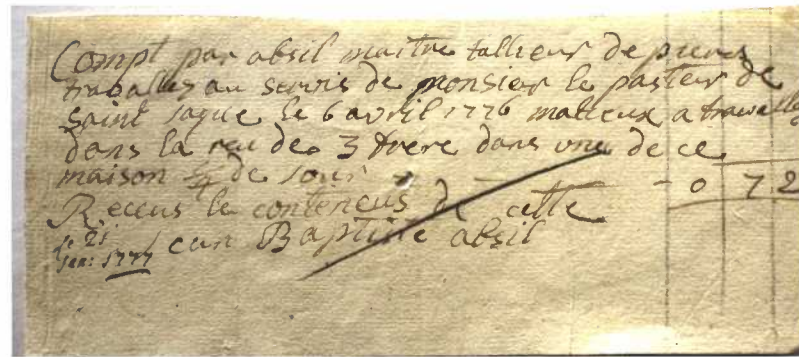 Compt par absil maitre tallieur de pieres
travalles au servis de monsier le pasteur de
saint Jaque le 6 avril 1776 matieux a travalles
dans la reu de 3 frere dans vne de ce
maison 3/4 de jour - 0 7 2
Reccus le conteneus de cette
le 21 jan: 1777 ean Baptiste absil